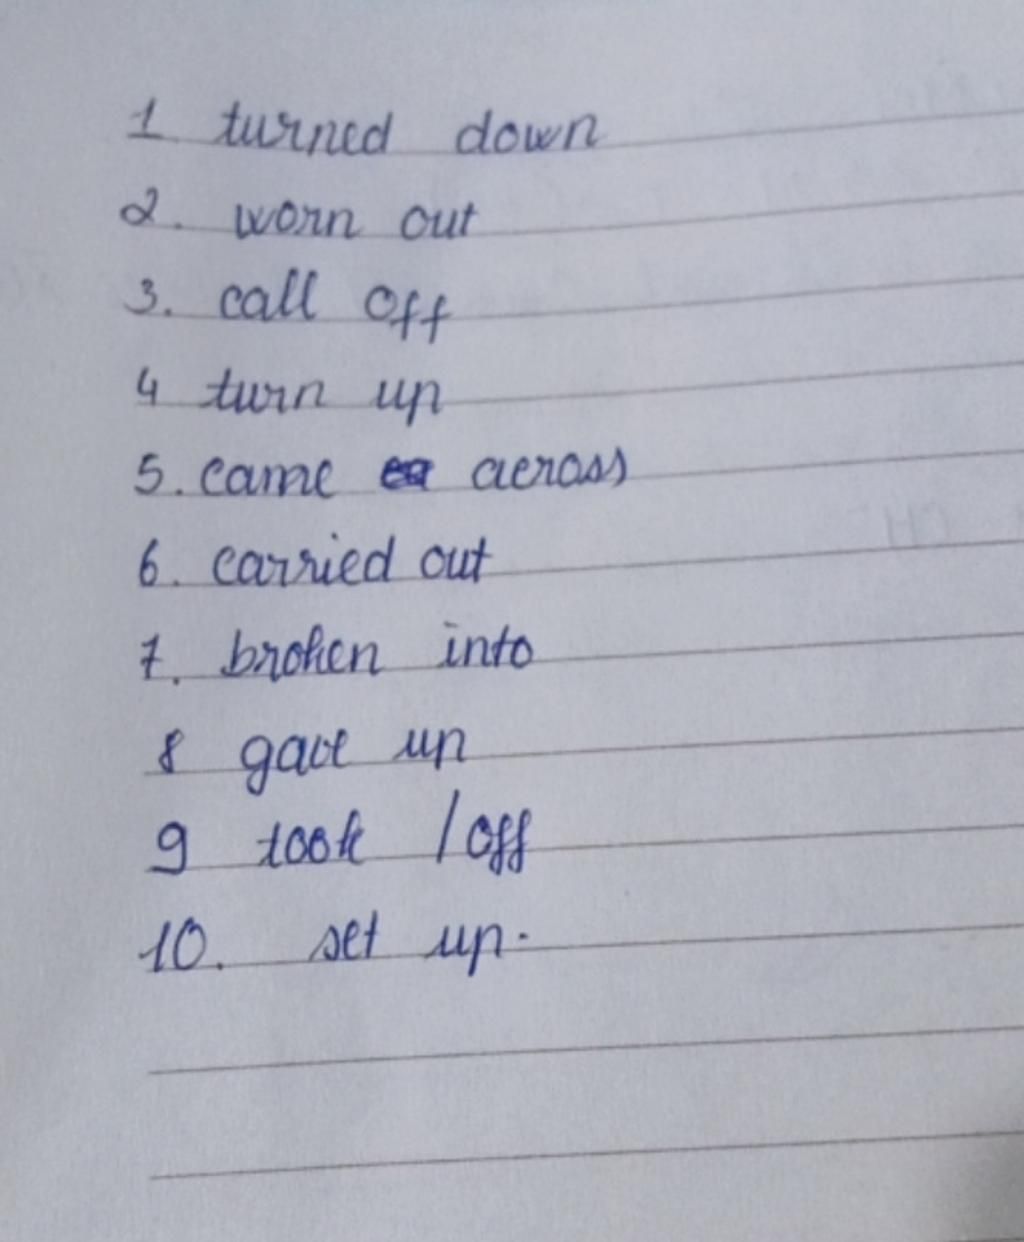 1 turned down
2. worn out
3. call off
4 turn up
5. came across
6. carried out
7. broken into
8 gave up
9 took / off
10. set up.